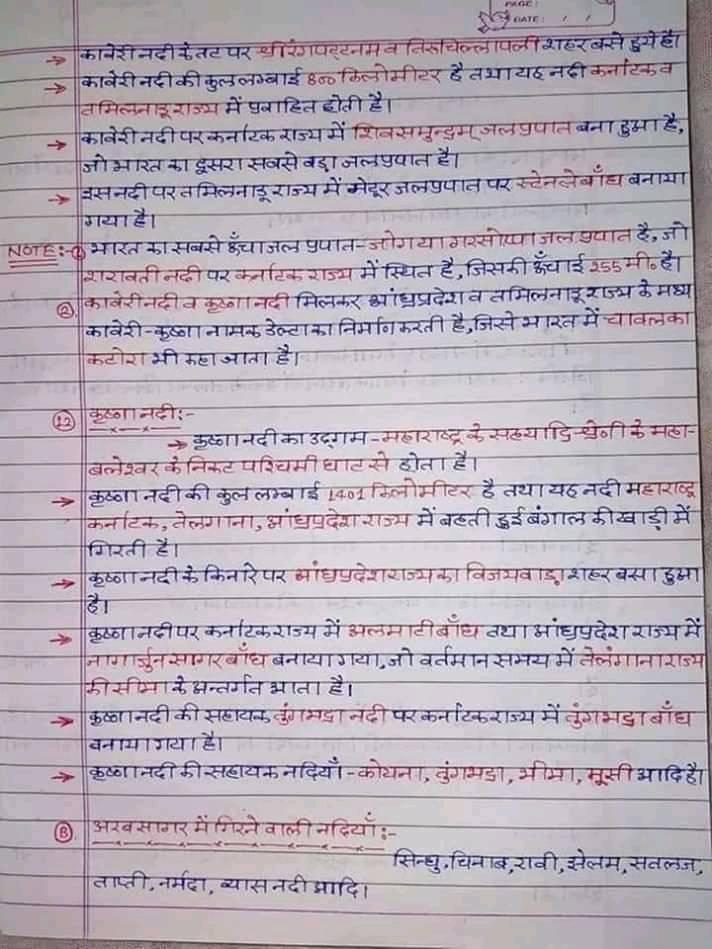 PAGE:
DATE: / /
→ कावेरी नदी के तट पर श्रीरंगपट्टनम व तिरुचिल्लापली शहर बसे हुये है।
→ कावेरी नदी की कुल लम्बाई 800 किलोमीटर है तथा यह नदी कर्नाटक व
तमिलनाडू राज्य में प्रवाहित होती है।
→ कावेरी नदी पर कर्नाटक राज्य में शिवसमुन्द्रम् जलप्रपात बना हुआ है,
जो भारत का दूसरा सबसे बडा जलप्रपात है।
→ इस नदी पर तमिलनाडू राज्य में मेटूर जलप्रपात पर स्टेनले बाँध बनाया
गया है।
NOTE:-① भारत का सबसे ऊँचा जल प्रपात-जोग या गरसोप्पा जल प्रपात है, जो
शरावती नदी पर कर्नाटक राज्य में स्थित है, जिसकी ऊँचाई 255 मी० है।
②. कावेरी नदी व कृष्णा नदी मिलकर आंध्रप्रदेश व तमिलनाडू राज्य के मध्य
कावेरी-कृष्णा नामक डेल्टा का निर्माण करती है, जिसे भारत में चावल का
कटोरा भी कहा जाता है।
⑫ कृष्णा नदी:-
→ कृष्णा नदी का उद्गम-महाराष्ट्र के सहयाद्रि श्रेणी के महा-
बलेश्वर के निकट पश्चिमी घाट से होता है।
→ कृष्णा नदी की कुल लम्बाई 1401 किलोमीटर है तथा यह नदी महाराष्ट्र
कर्नाटक, तेलगाना, आंध्रप्रदेश राज्य में बहती हुई बंगाल की खाड़ी में
गिरती है।
→ कृष्णा नदी के किनारे पर आंध्रप्रदेश राज्य का विजयवाड़ा शहर बसा हुआ
है।
→ कृष्णा नदी पर कर्नाटक राज्य में अलमाटी बाँध तथा आंध्रप्रदेश राज्य में
नागार्जुन सागर बाँध बनाया गया, जो वर्तमान समय में तेलंगाना राज्य
की सीमा के अन्तर्गत आता है।
→ कृष्णा नदी की सहायक तुंगभद्रा नदी पर कर्नाटक राज्य में तुंगभद्रा बाँध
बनाया गया है।
→ कृष्णा नदी की सहायक नदियाँ-कोयना, तुंगभद्रा, भीमा, मूसी आदि है।
Ⓑ. अरब सागर में गिरने वाली नदियाँ:-
सिन्धु, चिनाब, रावी, झेलम, सतलज,
ताप्ती, नर्मदा, व्यास नदी आदि।